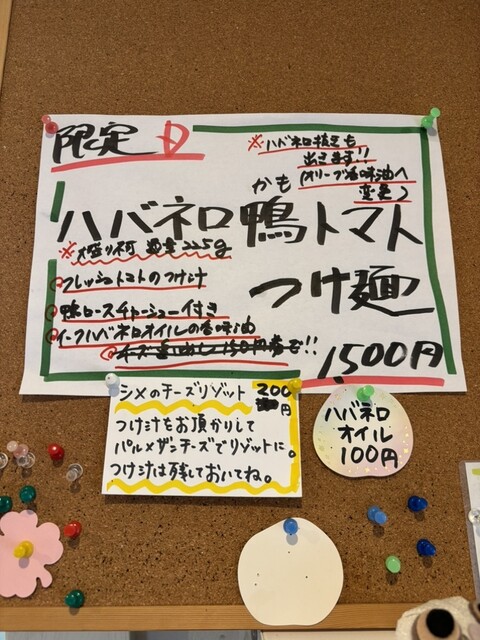 限定 D
※ハバネロ抜きも
出きます!!
(オリーブ香味油へ
変更)
かも
ハバネロ鴨トマト
つけ麺
※大盛り不可 通常225g
フレッシュトマトのつけ汁
鴨ロースチャーシュー付き
ハバネロオイルの香味油
1,500円
シメのチーズリゾット 200円
つけ汁をお頂かりして
パルメザンチーズでリゾットに。
つけ汁は残しておいてね。
ハバネロ
オイル
100円